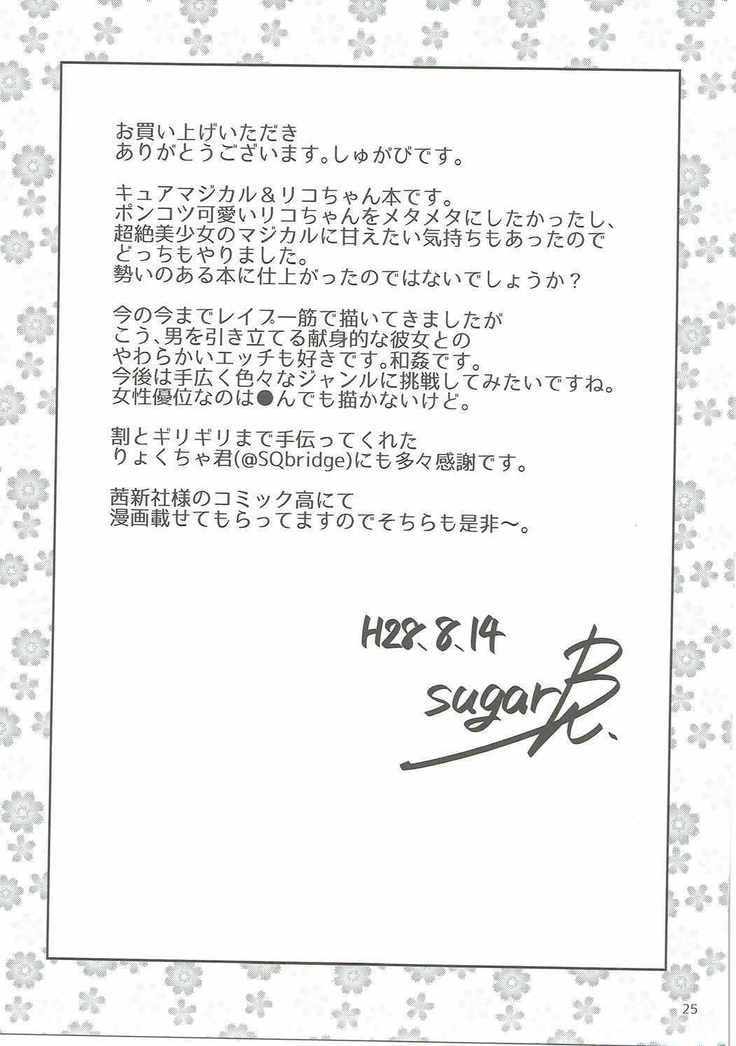 お買い上げいただき
ありがとうございます。しゅがびです。
キュアマジカル＆リコちゃん本です。
ポンコツ可愛いリコちゃんをメタメタにしたかったし、
超絶美少女のマジカルに甘えたい気持ちもあったので
どっちもやりました。
勢いのある本に仕上がったのではないでしょうか？
今の今までレイプ一筋で描いてきましたが
こう、男を引き立てる献身的な彼女との
やわらかいエッチも好きです。和姦です。
今後は手広く色々なジャンルに挑戦してみたいですね。
女性優位なのは●んでも描かないけど。
割とギリギリまで手伝ってくれた
りょくちゃ君(@SQbridge)にも多々感謝です。
茜新社様のコミック高にて
漫画載せてもらってますのでそちらも是非～。
H28.8.14
sugar
25